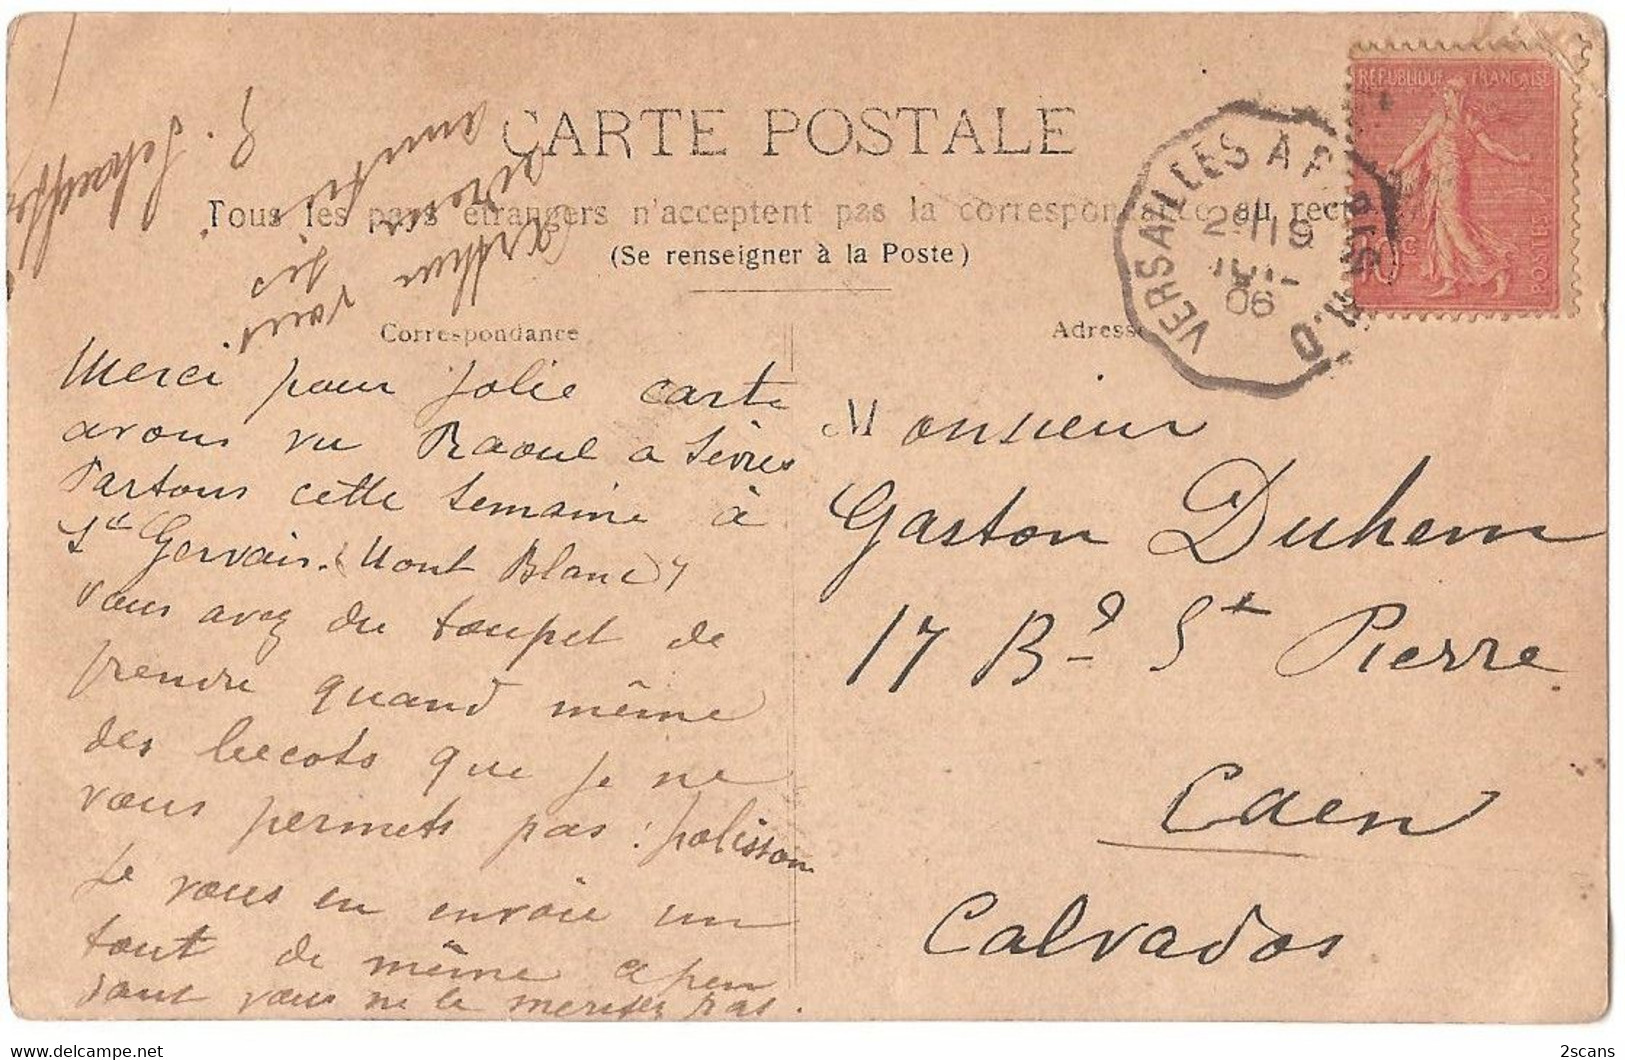 CARTE POSTALE
Tous les pays étrangers n'acceptent pas la correspondance au recto
(Se renseigner à la Poste)
Correspondance
Adresse
REPUBLIQUE FRANÇAISE
10c
POSTES
VERSAILLES A PARIS R.D
2e 19
JUIL
06
Merci pour jolie carte
avons vu Raoul a Sèvres
Partons cette semaine à
St Gervais. (Mont Blanc)
Vous avez du toupet de
prendre quand même
des becots que je ne
vous permets pas! polisson
Je vous en envoie un
tout de même cependant
vous ne le meritez pas.
Arthur vous
amitiés
Monsieur
Gaston Duhem
17 Bd St Pierre
Caen
Calvados
2scans
delcampe.net